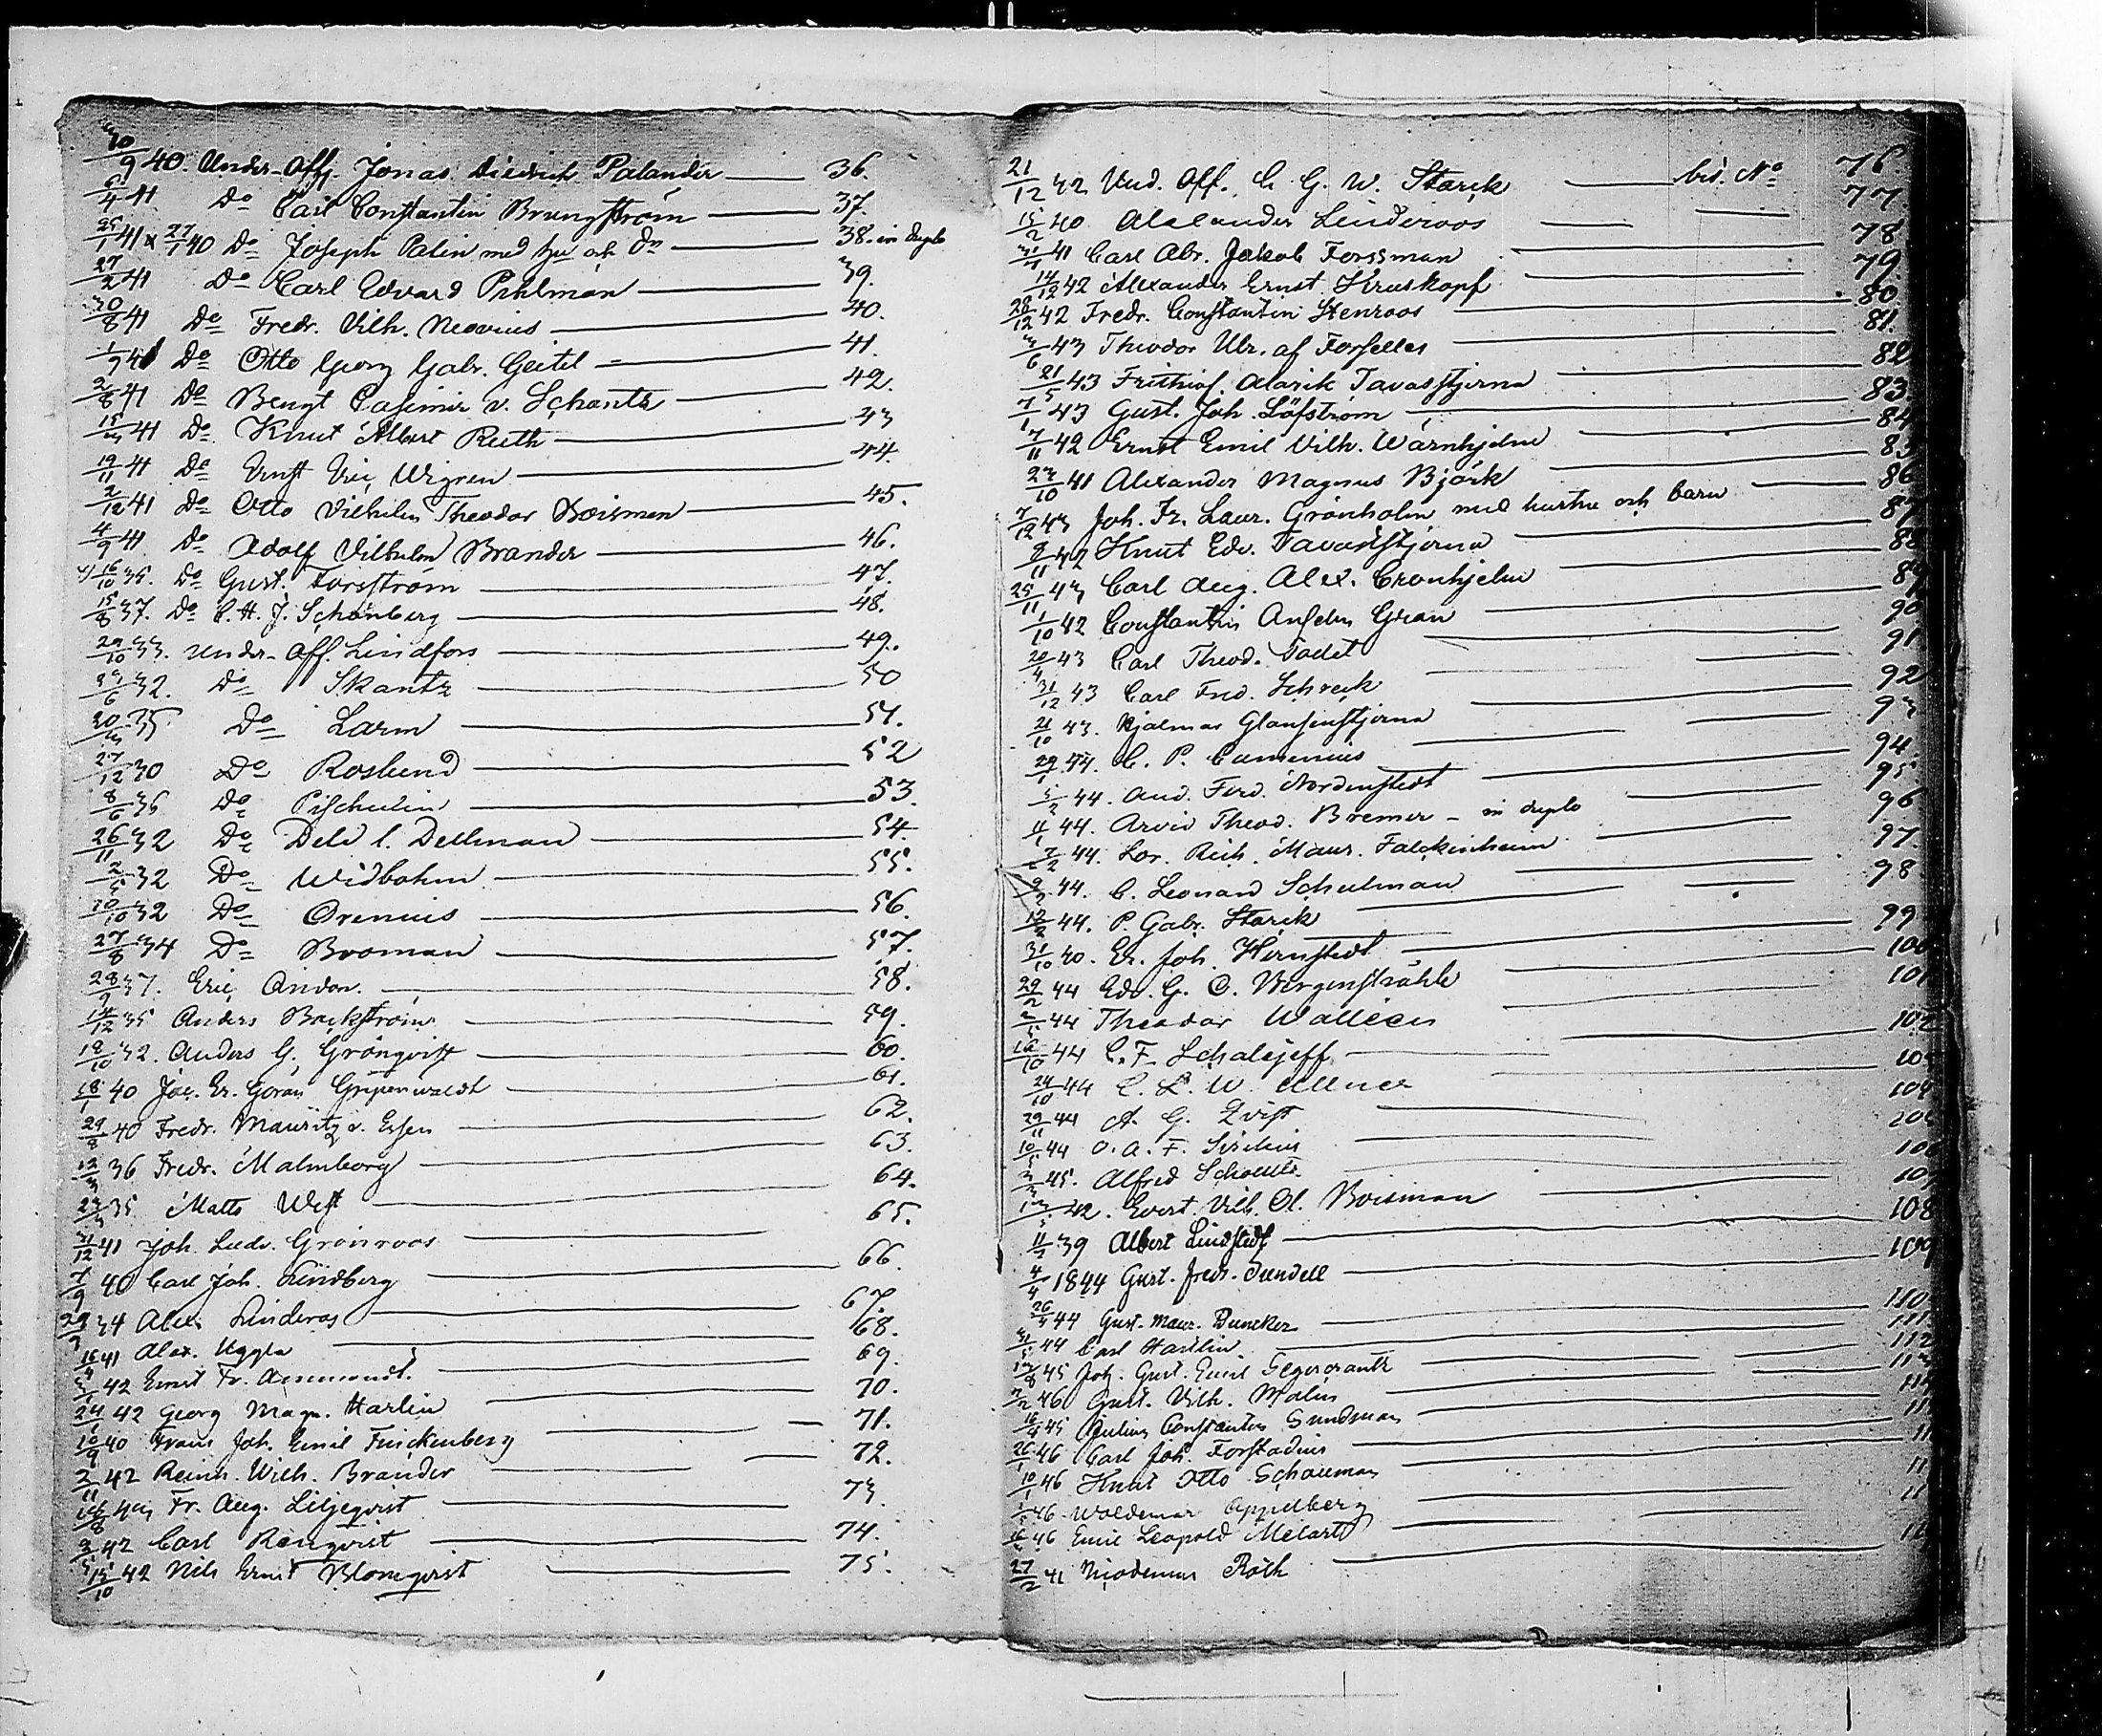 30/9 40. Under-Off. Jonas Diedrich Palander — 36.
6/4 41 Do Carl Constantin Brungström — 37.
25/1 41 & 27/1 40 Do Joseph Palin med hu och dr — 38. in duplo
27/2 41 Do Carl Edvard Pihlman — 39.
30/8 41 Do Fredr. Vilh. Neovius — 40.
1/9 41 Do Otto Georg Gabr. Geitel — 41.
2/8 41 Do Bengt Casimir v. Schantz — 42.
15/3 41 Do Knut Albert Reuth — 43
19/11 41 Do Ernst Eric Wigren — 44.
2/12 41 Do Otto Vilhelm Theodor Boisman — 45.
4/9 41 Do Adolf Vilhelm Brander — 46.
16/10 35. Do Gust. Forsström — 47.
15/8 37. Do C. H. J. Schönberg — 48.
29/10 33. Under-Off. Lindfors — 49.
/6 32. Do Skantz — 50
30/3 35 Do Larm — 51.
27/12 30 Do Roslund — 52
8/6 35 Do Pischulin — 53.
26/11 32 Do Dellman — 54.
2/5 32 Do Widbohm — 55.
10/10 32 Do Orenius — 56.
27/8 34 Do Broman — 57.
28/9 37. Eric — 58.
14/12 35 Anders Backström — 59.
18/10 32. Anders G. Grönqvist — 60.
18/1 40 Jac. Er. Göran Gripenwaldt — 61.
29/8 40 Fredr. Mauritz v. Essen — 62.
12/3 36 Fredr. Malmborg — 63.
/3 35 Matts West — 64.
31/12 41 Joh. Ludv. Grönroos — 65.
7/9 40 Carl Joh. Lindberg — 66.
34 Alex. Linderos — 67.
16/4 41 Alex. Uggla — 68.
42 Ernst Fr. Ammondt. — 69.
24/1 42 Georg Magn. Harlin — 70.
10/9 40 Frans Joh. Emil Finckenberg — 71.
2/11 42 Reinh. Wilh. Brander — 72.
/8 43 Fr. Aug. Liljeqvist — 73.
3/5 42 Carl Renqvist — 74.
15/10 42 Nils Ernst Blomqvist — 75.
21/12 42 Und. Off. C. G. W. Starck — bil. No 76
15/2 40 Alexander Linderoos — 77
41 Carl Abr. Jakob Forssman — 78
14/12 42 Alexander Ernst Kruskopf — 79.
28/12 42 Fredr. Constantin Stenroos — 80
3/6 43 Theodor Ulr. af Forselles — 81.
21/5 43 Frithiof Alarik Tavaststjerna — 82
7/1 43 Gust. Joh. Löfström — 83.
7/11 42 Ernst Emil Vilh. Wärnhjelm — 84
23/10 41 Alexander Magnus Björk — 85
7/12 43 Joh. Fr. Laur. Grönholm med hustru och barn — 86
9/11 42 Knut Edv. Tavaststjerna — 87
25/11 43 Carl Aug. Alex. Cronhjelm — 88
1/10 42 Constantin Anselm Gran — 89
20/4 43 Carl Theod. Tadet — 90
31/12 43 Carl Fred. Schreck — 91
21/10 43. Hjalmar Glansenstjerna — 92
29/1 44. C. P. Camenius — 93
5/2 44. And. Ferd. Nordenstedt — 94.
11/1 44. Arvid Theod. Bremer — in duplo 95
7/2 44. Lor. Reih. Maur. Falckenheim — 96
9/2 44. C. Leonard Schulman — 97.
12/2 44. P. Gabr. Starck — 98
31/10 40. Er. Joh. Hernstedt — 99
29/2 44 Edv. G. O. Bergenstråhle — 100
44 Theodor Walleen — 101
16/10 44 C. F. Schalejeff — 102
24/10 44 C. L. W. — 103
29/11 44 A. G. Qvist — 104
10/5 44 O. A. F. Sirelius
45. Alfred — 106
42. Evert Vilh. Ol. Boisman — 107
11/2 39 Albert Lindstedt — 108
4/4 1844 Gust. Fredr. Sundell — 109
26/4 44 Gust. Maur. Duncker — 110
31/5 44 Carl Harlin — 111
13/8 45 Joh. Gust. Emil Segercrantz — 112
7/2 46 Gust. Vilh. Malm — 113
16/4 45 Julius Constantin Sundman — 114
26/1 46 Carl Joh. Forstadius — 11
10/1 46 Knut Otto Schauman — 11
46. Woldemar Appelberg — 11
16/ 46 Emil Leopold Melart — 11
27/2 41 Nicodemus Roth — 11